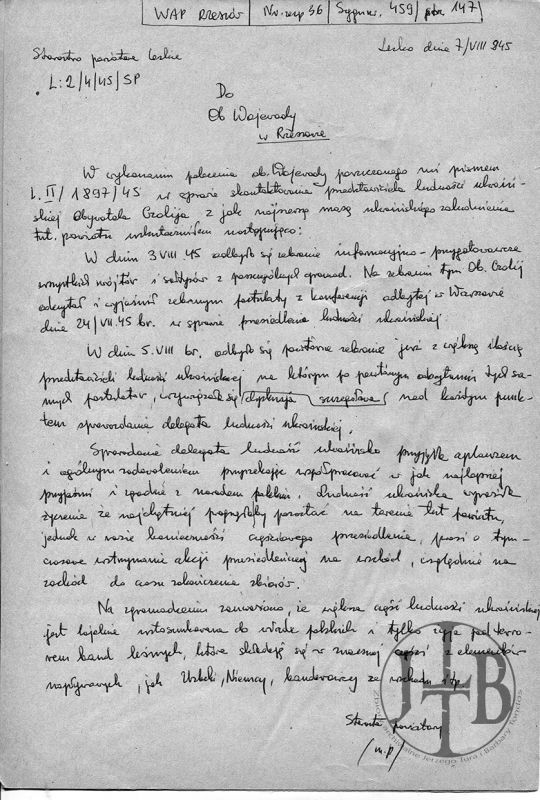 WAP Rzeszów | Nr. zesp 36 | Sygnat. 459/ str 147
Starostwo powiatowe Leskie
Lesko dnia 7/VIII 945
L: 2/4/45/SP
Do
Ob Wojewody
w Rzeszowie
W wykonaniu polecenia ob. Wojewody poruczonego mi pismem
L. II/1897/45 w sprawie skontaktowania przedstawiciela ludności ukraiń-
skiej Obywatela Czolija z jak najszerszą masą ukraińskiego zaludnienia
tut. powiatu uskuteczniłem następująco:
W dniu 3 VIII 45 odbyło się zebranie informacyjno-przygotowawcze
wszystkich wójtów i sołtysów z poszczególnych gromad. Na zebraniu tym Ob. Czolij
odczytał i wyjaśnił zebranym postulaty z konferencji odbytej w Warszawie
dnia 24/VII.45 br. w sprawie przesiedlenia ludności ukraińskiej.
W dniu 5.VIII br. odbyło się powtórne zebranie już z większą ilością
przedstawicieli ludności ukraińskiej na którym po powtórnym odczytaniu tych sa-
mych postulatów, wywiązała się dyskusja szczegółowa nad każdym punk-
tem sprawozdania delegata ludności ukraińskiej.
Sprawozdanie delegata ludność ukraińska przyjęła aplauzem
i ogólnym zadowoleniem przyrzekając współpracować w jak najlepszej
przyjaźni i zgodzie z narodem polskim. Ludność ukraińska wyraziła
życzenie że najchętniej pragnęłaby pozostać na terenie tut powiatu,
jednak w razie konieczności częściowego przesiedlenia, prosi o tym-
czasowe wstrzymanie akcji przesiedleńczej na wschód, względnie na
zachód do czasu zakończenia zbiorów.
Na zgromadzeniu zauważono, że większa część ludności ukraińskiej
jest lojalnie ustosunkowana do władz polskich i tylko żyje pod terro-
rem band leśnych, które składają się w znacznej części z elementów
napływowych, jak Uzbeki, Niemcy, banderowcy ze wschodu itp.
Starosta powiatowy
(m.p)
JLTB
Zbiory archiwalne Jerzego Tura i Barbary Tondos